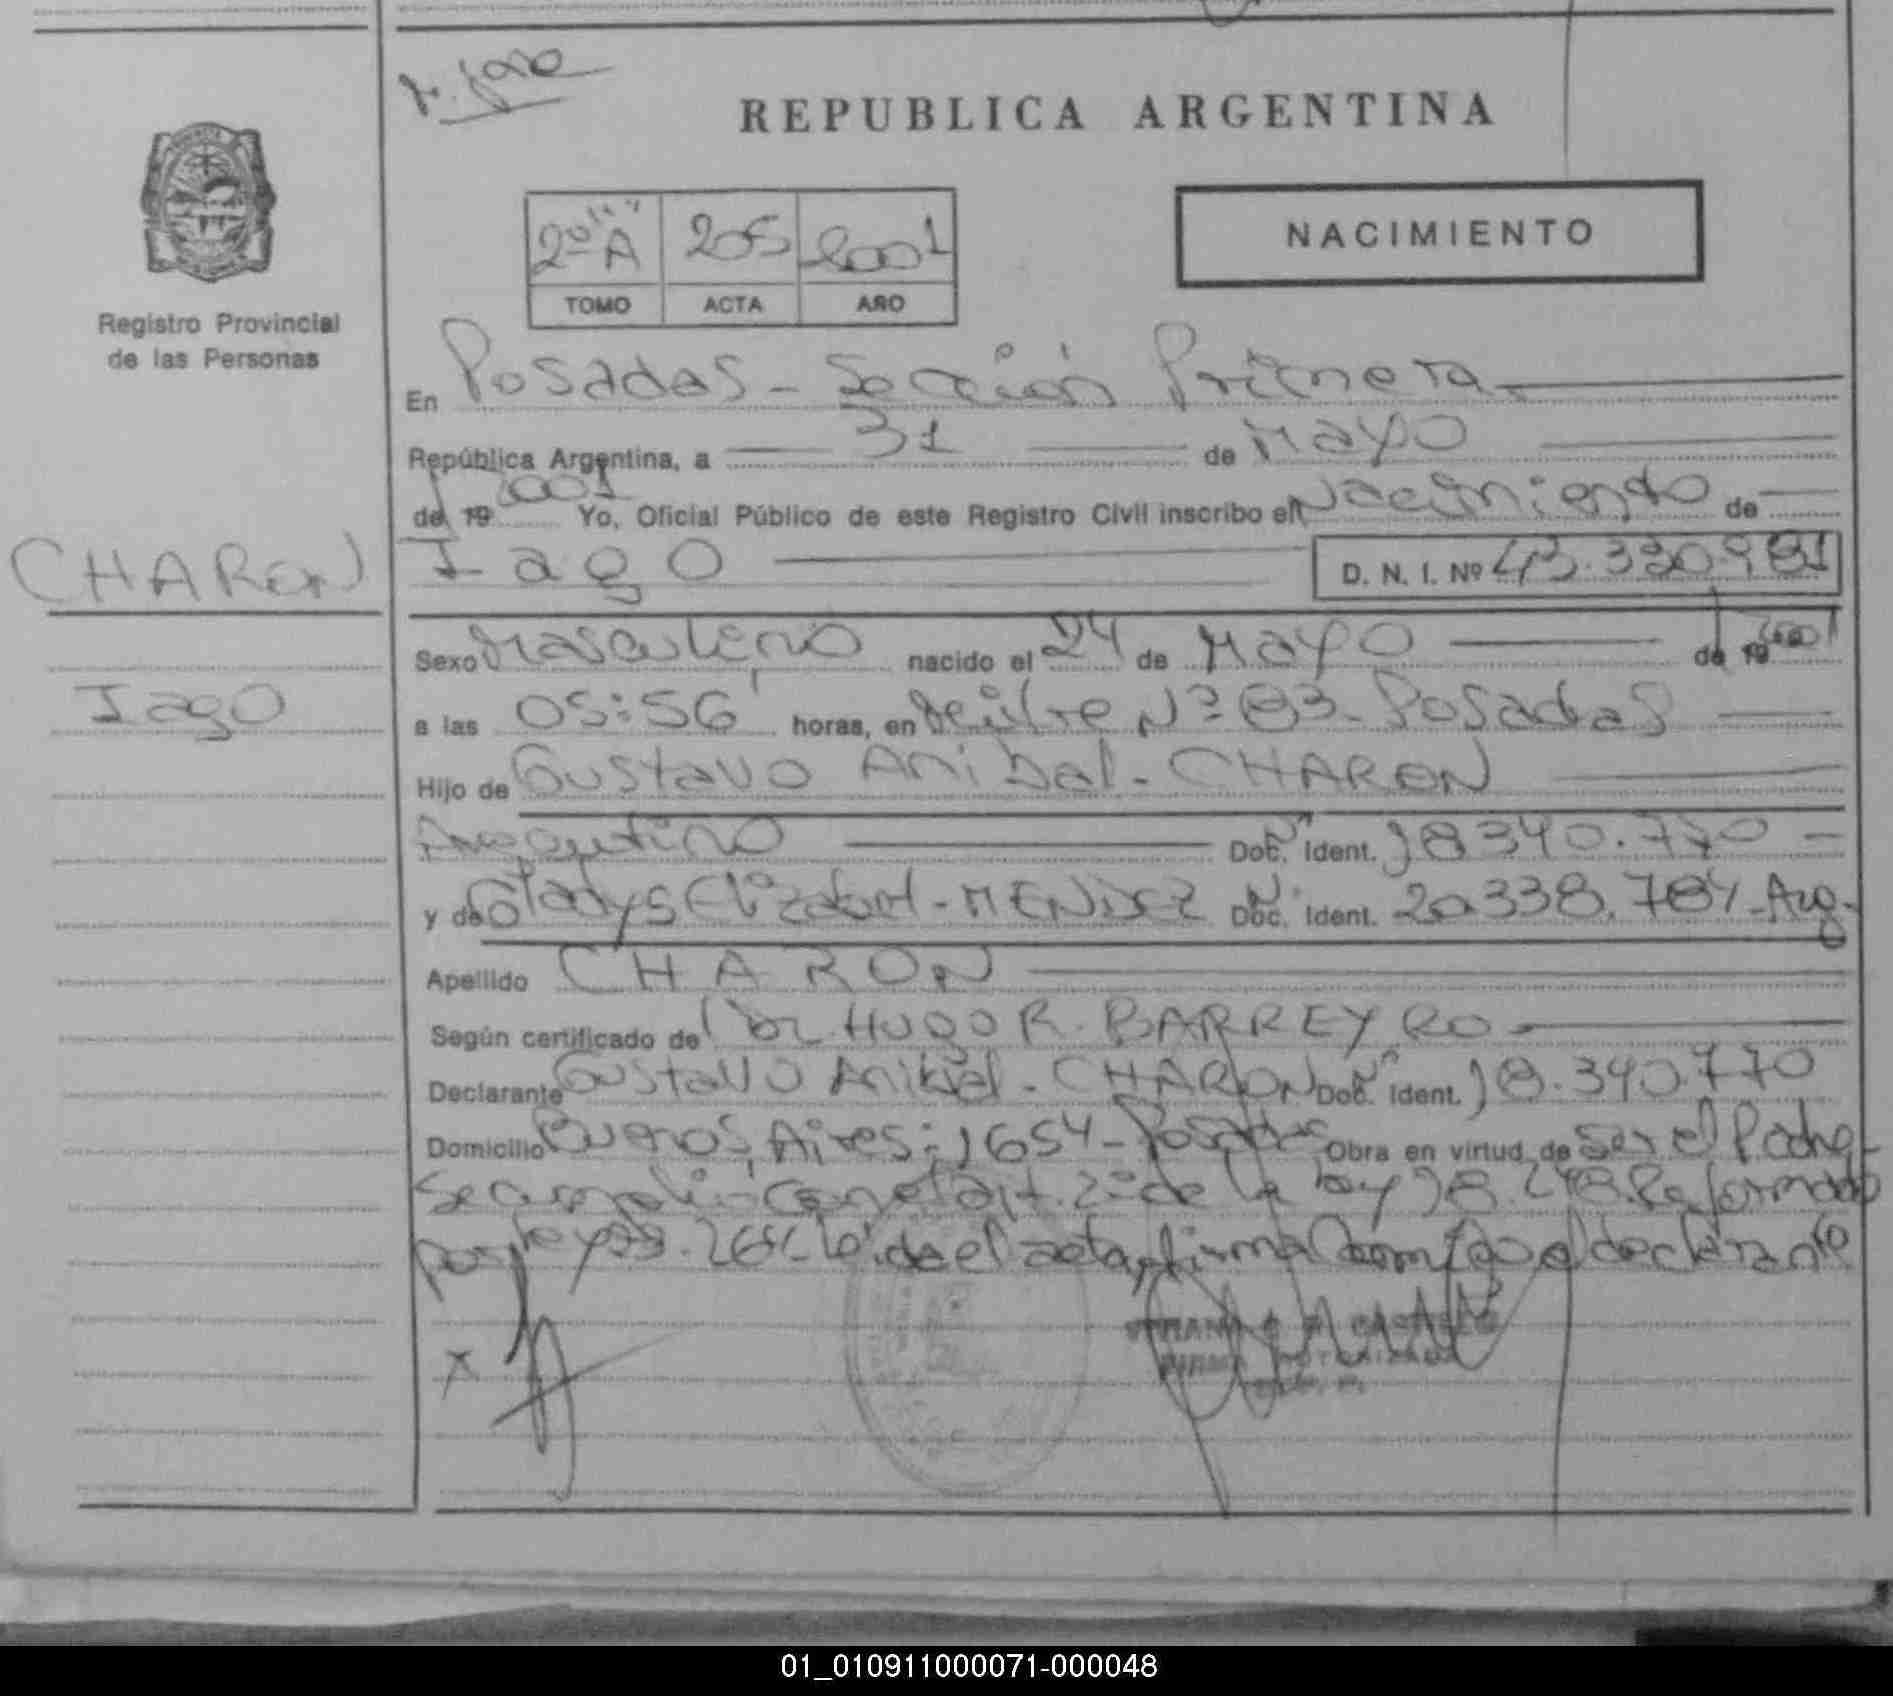 REPUBLICA ARGENTINA
2º "A" 205 2001
TOMO ACTA AÑO
NACIMIENTO
Registro Provincial
de las Personas
En Posadas - Sección Primera
República Argentina, a 31 de Mayo
de 19 2001 Yo, Oficial Público de este Registro Civil inscribo el Nacimiento de
CHARON
Iago D. N. I. Nº 43.330.981
Sexo Masculino nacido el 24 de Mayo de 19 2001
Iago
a las 05:56 horas, en Nº 83 - Posadas
Hijo de Gustavo Anibal - CHARON
Argentino Doc. Ident. 18340.770
y de Gladys Elizabet - MENDEZ Doc. Ident. 20.338.784 - Arg.
Apellido CHARON
Según certificado de Dr. HUGO R. BARREYRO
Declarante Gustavo Anibal - CHARON Doc. Ident. 18.340.770
Domicilio Buenos Aires: 1654 - Posadas Obra en virtud de ser el Padre
Se con el art. 2º de la Ley 18.248. Reformado
por ley el acta firma conmigo el declarante
X
01_010911000071-000048